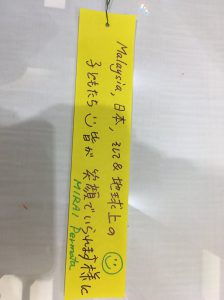 Malaysia, 日本, そして地球上の
子どもたち皆が 笑顔でいられます様に
MIRAI Permata